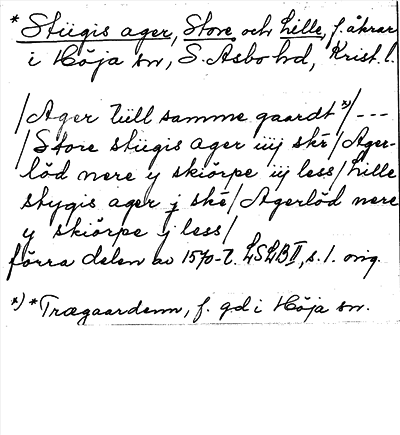 * Stiigis ager, Store och Lille, f. åkrar
i Höja sn, S. Asbo hd, Krist. l.
/Ager till samme gaardt *)/ ---
/Store stiigis ager iiij skr̄/Ager-
löd nere y skiörpe iij less/Lille
stygis ager j skē/Agerlöd nere
y skiörpe j less/
förra delen av 1570-t. LSLB II, s. 1. orig.
*) * Træegaardenn, f. gd i Höja sn.